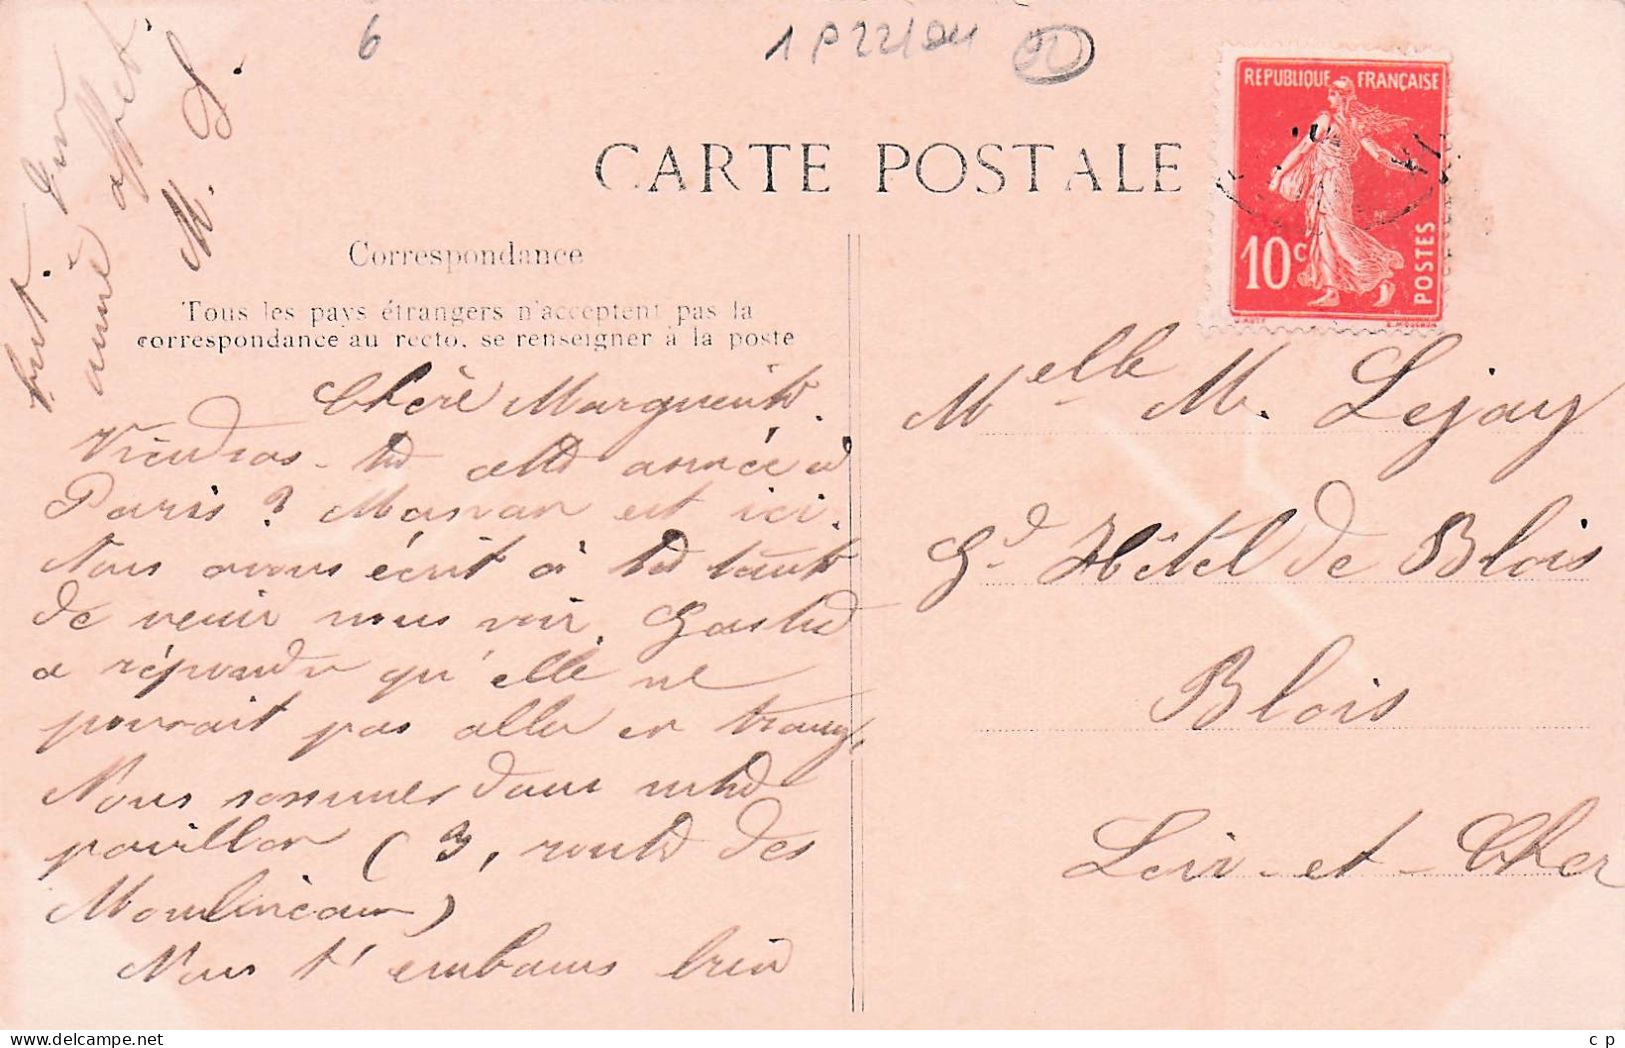 6
1P22/04
CARTE POSTALE
REPUBLIQUE FRANÇAISE
10c
POSTES
Correspondance
Tous les pays étrangers n'acceptent pas la
correspondance au recto, se renseigner à la poste
Chère Marguerite.
Viendras-tu cette année à
Paris ? Maman est ici.
Nous avons écrit à ta tante
de venir nous voir.
a répondu qu'elle ne
pouvait pas aller en tramw,
Nous sommes dans notre
pavillon (3, route des
Moulineaux)
Nous t'embrassons bien
fort. Ton
amie affect.
M. L.
Melle M. Lejay
Gd Hôtel de Blois
Blois
Loir-et-Cher